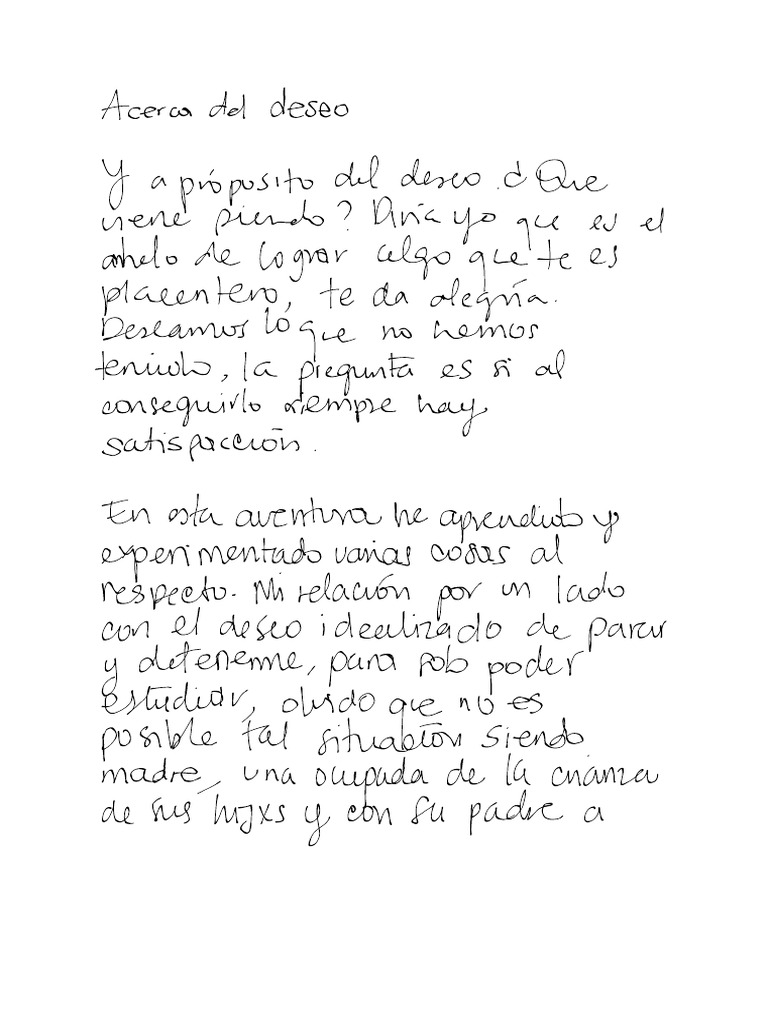 Acerca del deseo
Y a próposito del deseo ¿ Que
viene siendo? Diría yo que es el
anhelo de lograr algo que te es
placentero, te da alegría.
Deseamos lo que no hemos
tenido, la pregunta es si al
conseguirlo siempre hay
satisfacción.
En esta aventura he aprendido y
experimentado varias cosas al
respecto. Mi relación por un lado
con el deseo idealizado de parar
y detenerme, para solo poder
estudiar, olvido que no es
posible tal situación siendo
madre, una ocupada de la crianza
de sus hijxs y con su padre a